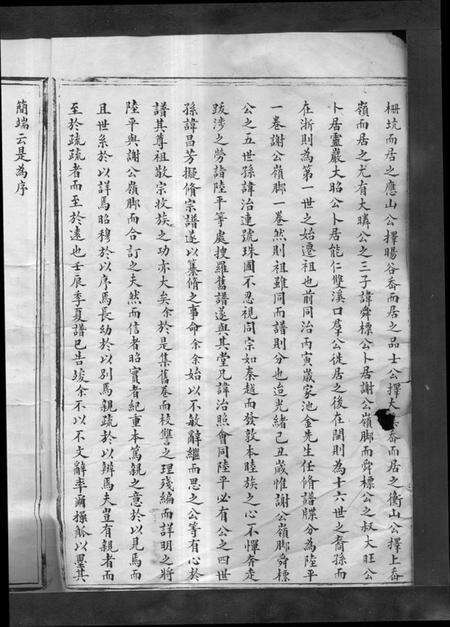 柵坑而居之應山公擇暘谷畬而居之品士公擇大畬而居之衡山公擇上畬
嶺而居之尤有大疄公之三子諱舜標公卜居謝公嶺脚而舜標公之叔大旺公
卜居靈巖大昭公卜居能仁雙溪口羣公徙居之後在閩則為十六世之裔孫而
在浙則為第一世之始遷祖也前同治丙寅歲家池金先生任脩譜牒分為陸平
一卷謝公嶺脚一卷然則祖雖同而譜則分也迨光緒己丑歲惟謝公嶺脚舜標
公之五世孫諱治連號珠圃不忍視同宗如秦越而發敦本睦族之心不憚奔走
跋涉之勞詣陸平等處搜羅舊譜遂與其堂兄諱治照會同陸平必有公之四世
孫諱昌芳擬脩宗譜遂以纂脩之事命余余始以不敏辭繼而思之公等有心於
譜其尊祖敬宗收族之功亦大矣余於是集舊卷而校讐之理殘編而詳明之將
陸平與謝公嶺脚而合訂之夫然而信者昭實者紀重本篤親之意於以見焉而
且世系於以詳焉昭穆於以序焉長幼於以別焉親疏於以辨焉夫豈有親者而
至於疏疏者而至於遠也壬辰季夏譜已告竣余不以不文辭率爾操觚以畀其
簡端云是為序